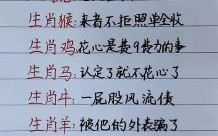 生肖猴：来者不拒照单全收
生肖鸡：花心是要费力的事
生肖马：认定了就不花心了
生肖牛：一屁股风流债
生肖羊：被他的外表骗了